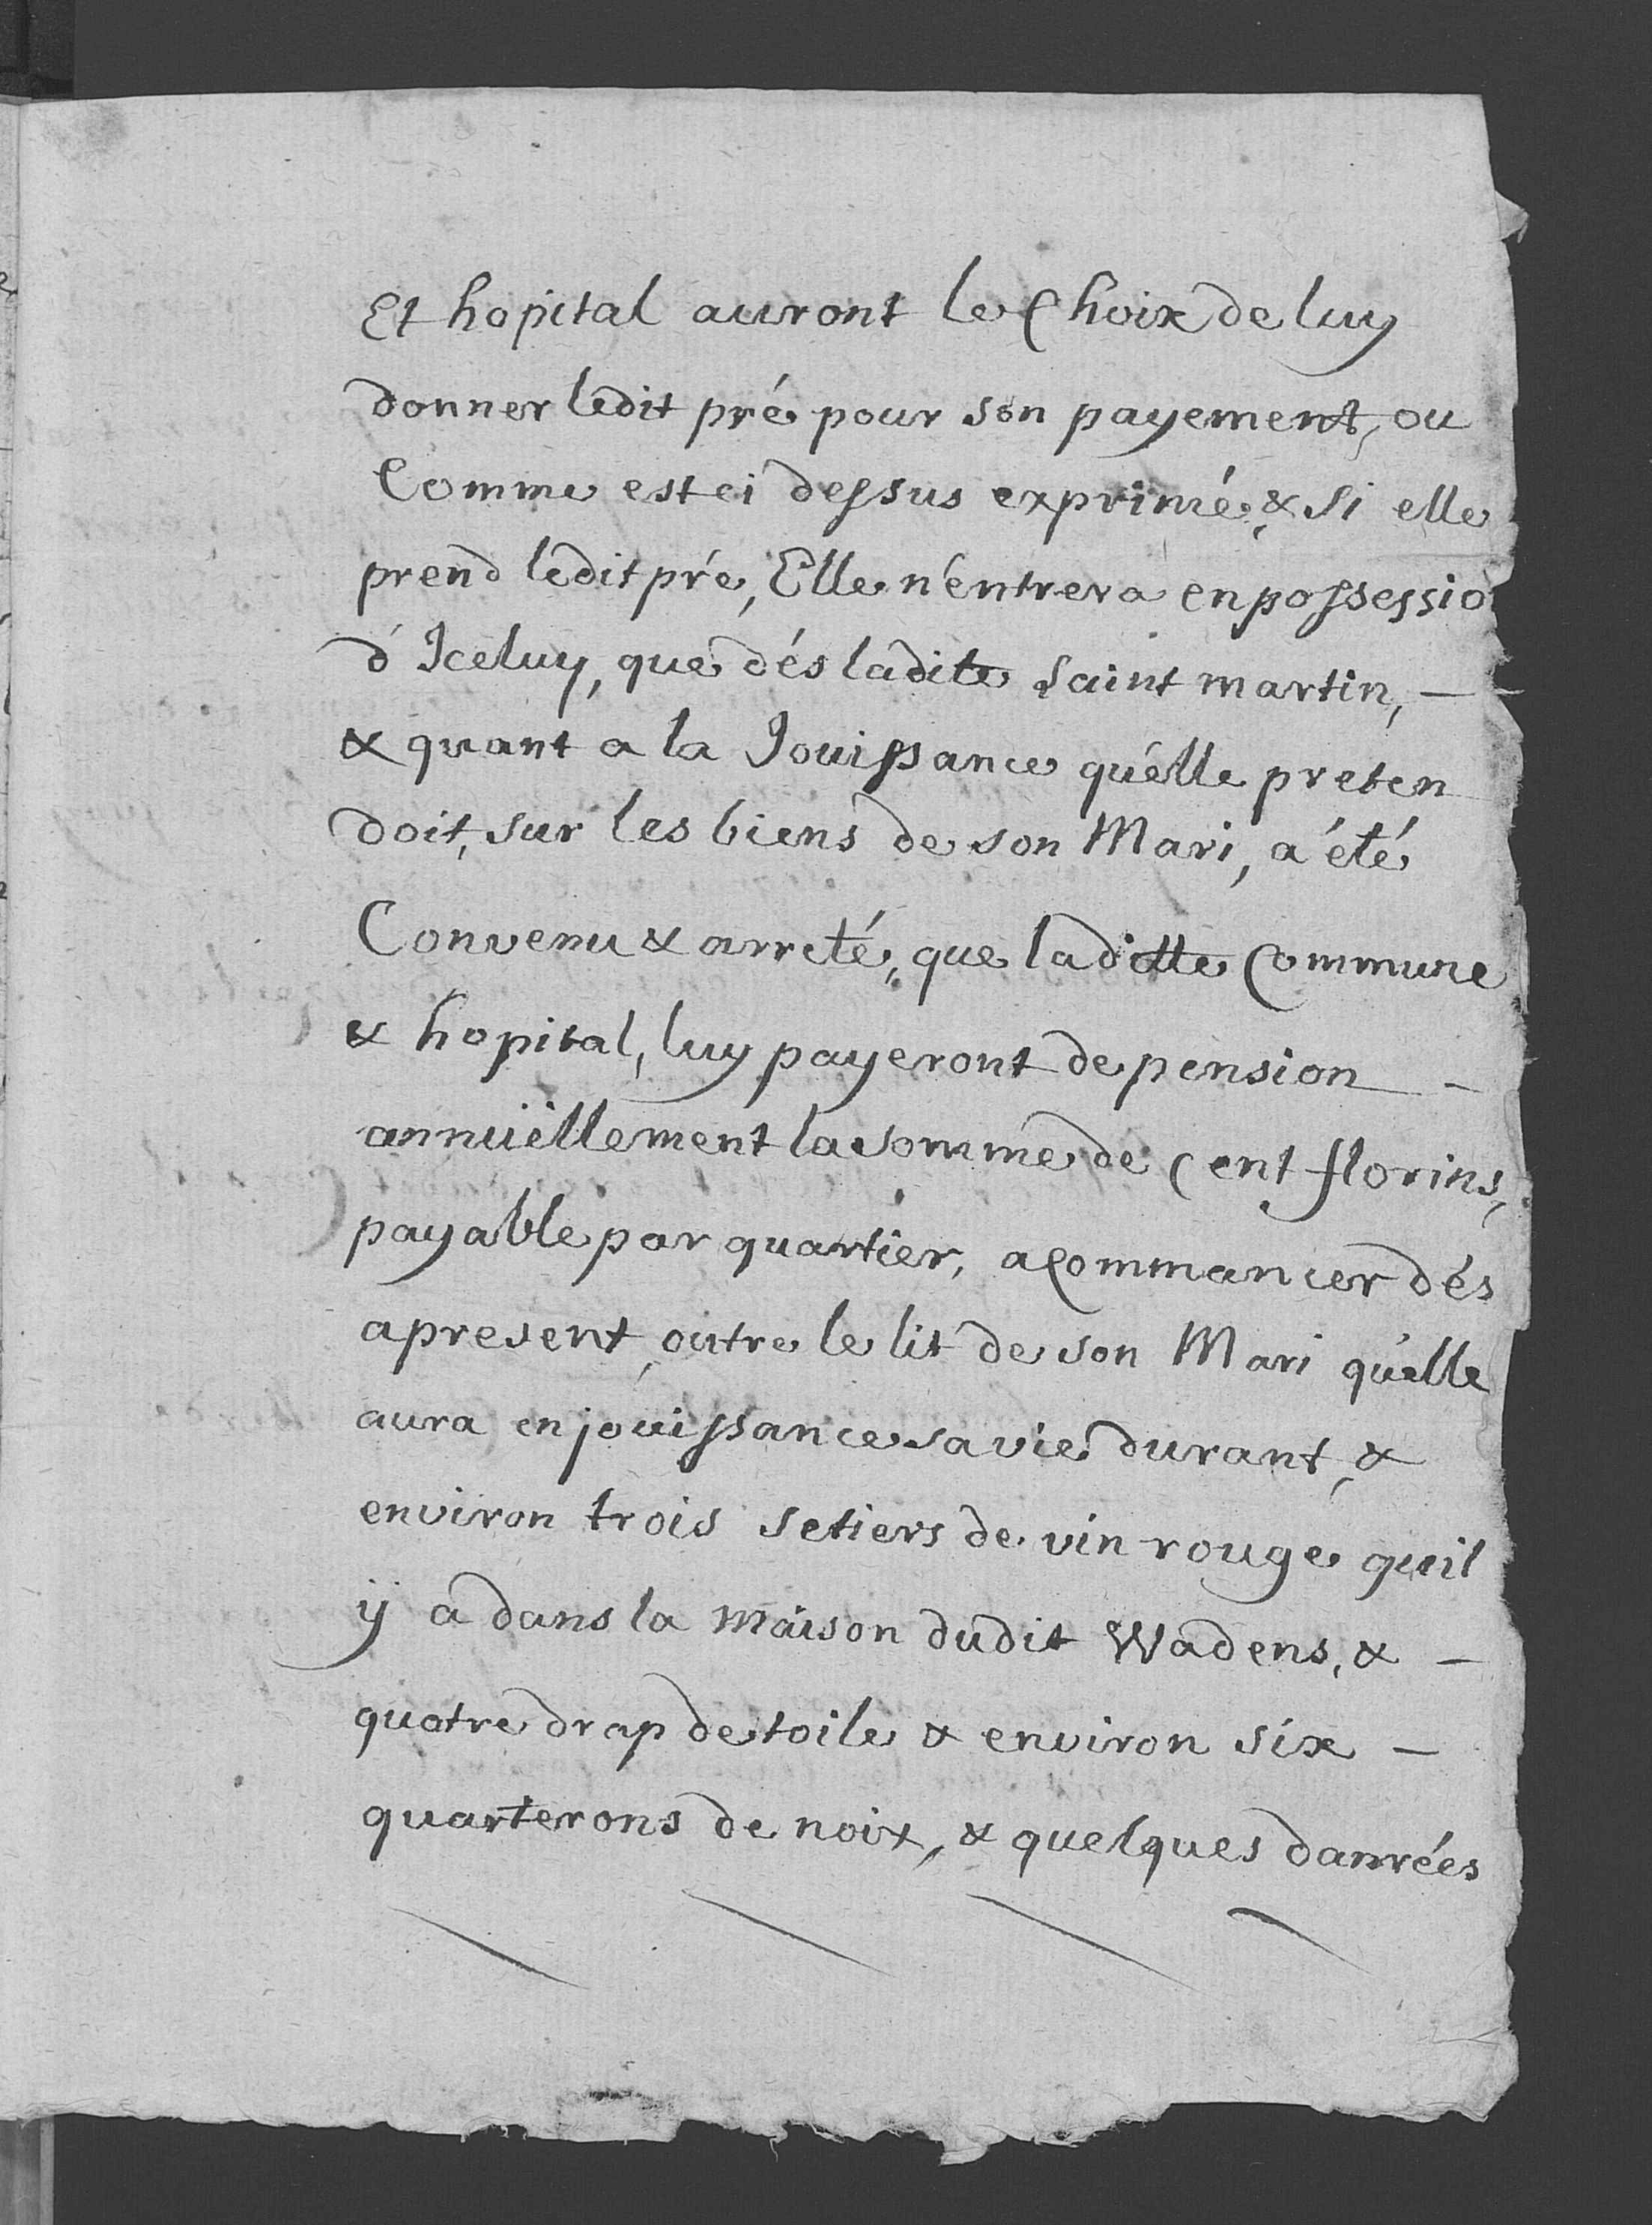 Et hopital auront le Choix de luy
donner ledit pré pour son payement, ou
Comme est ci dessus exprimé, & si elle
prend ledit pré, Elle n'entrera en possessio
d'Iceluy, que dés ladite saint martin, —
& quant a la Jouissance qu'elle preten
doit, sur les biens de son Mari, a été
Convenu & arreté, que laditte Commune
& hopital, luy payeront de pension —
annüellement la somme de Cent florins,
payable par quartier, a Commancer dés
apresent, outre le lit de son Mari qu'elle
aura en jouissance sa vie durant, &
environ trois setiers de vin rouge qu'il
ÿ a dans la maison dudit Wadens, & —
quatre drap de toile & environ six —
quarterons de noix, & quelques danrées